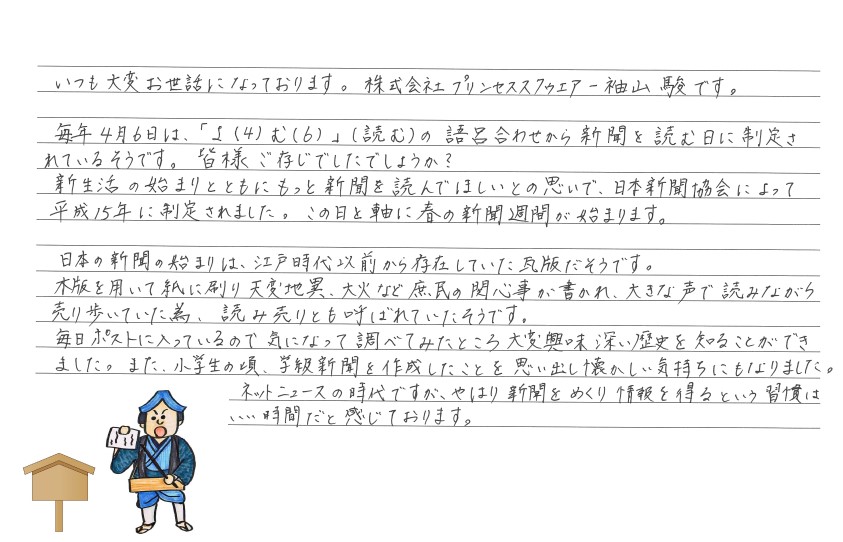 いつも大変お世話になっております。株式会社プリンセススクウェアー袖山駿です。
毎年4月6日は、「よ(4)む(6)」(読む)の語呂合わせから新聞を読む日に制定さ
れているそうです。皆様ご存じでしたでしょうか?
新生活の始まりとともにもっと新聞を読んでほしいとの思いで、日本新聞協会によって
平成15年に制定されました。この日と軸に春の新聞週間が始まります。
日本の新聞の始まりは、江戸時代以前から存在していた瓦版だそうです。
木版を用いて紙に刷り天変地異、大火など庶民の関心事が書かれ、大きな声で読みながら
売り歩いていた為、読み売りとも呼ばれていたそうです。
毎日ポストに入っているので気になって調べてみたところ大変興味深い歴史を知ることができ
ました。また、小学生の頃、学級新聞を作成したことを思い出し懐かしい気持ちにもなりました。
ネットニュースの時代ですが、やはり新聞をめくり情報を得るという習慣は
いい時間だと感じております。